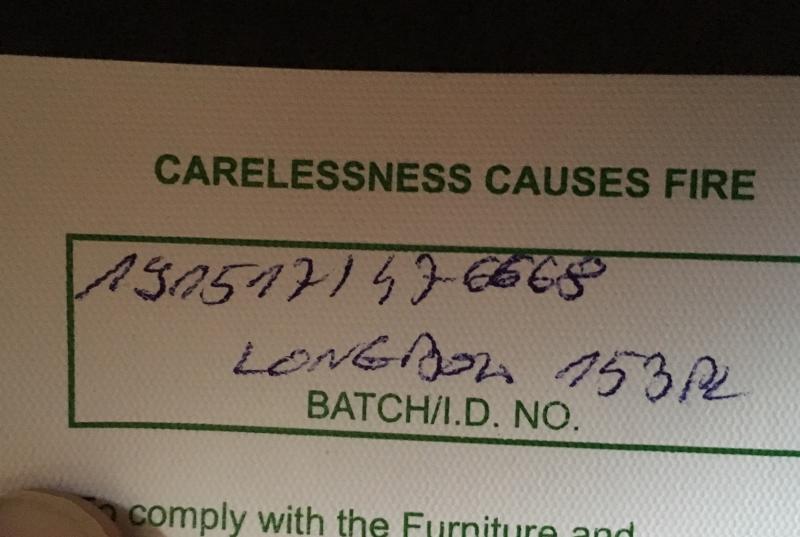 CARELESSNESS CAUSES FIRE
191517/47-6668
LONGBOW 153 PL
BATCH/I.D. NO.
To comply with the Furniture and